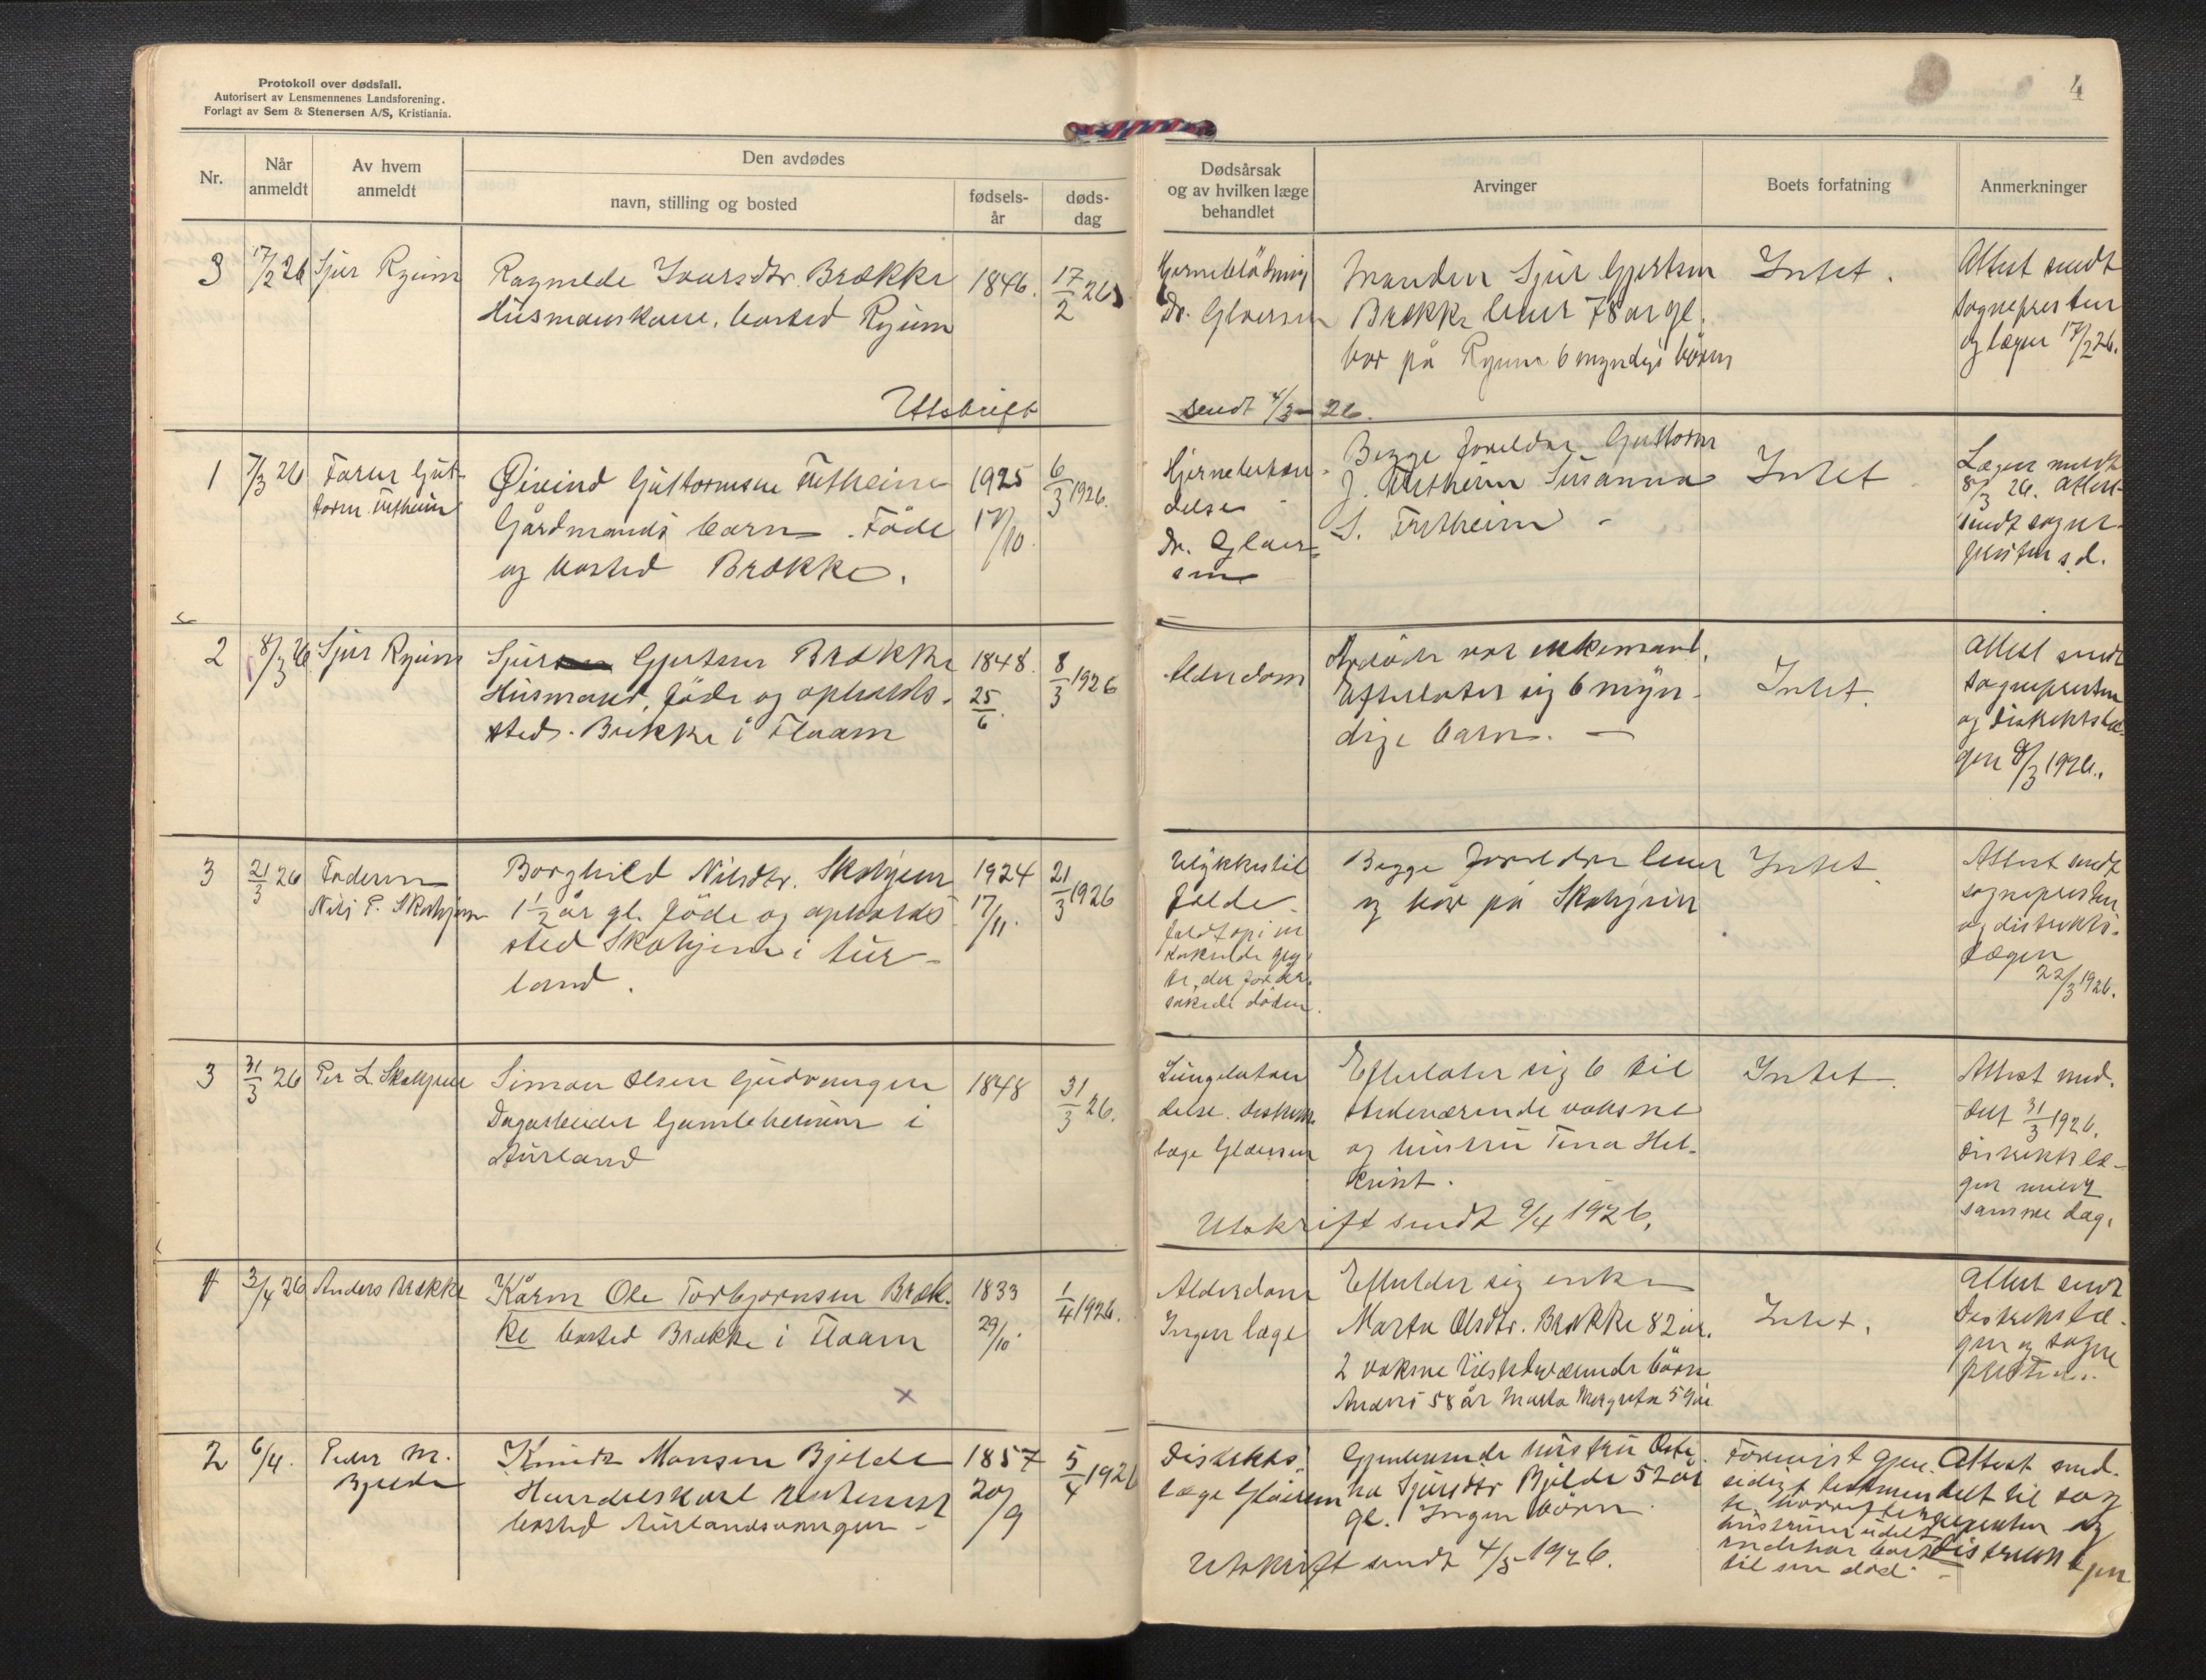 Protokoll over dødsfall.
Autorisert av Lensmennenes Landsforening.
Forlagt av Sem & Stenersen A/S, Kristiania.
4
Nr.
Når
anmeldt
Av hvem
anmeldt
Den avdødes
navn, stilling og bosted
fødsels-
år
døds-
dag
Dødsårsak
og av hvilken læge
behandlet
Arvinger
Boets forfatning
Anmerkninger
3
17/2 26
Sjur Ryum
Ragnilde Iversdtr. Brække
Husmanskone. bosted Ryum
1846.
17/2 26
Hjerneblödning
Dr. Gloersen
Manden Sjur Gjertsen
Brække lever 78 ar gl.
bor på Ryum 6 myndige börn
Intet.
Attest sendt
sognepresten
og lægen 17/2 26.
Utskrift
sendt 4/3-26.
1
7/3 26
Faren Gut-
torm Fretheim
Öivind Guttormsen Fretheim
Gårdmands barn. Föde
og bosted Brække.
1925
17/10.
6/3 1926.
Hjernebetæn-
delse
Dr. Gloer-
sen
Begge foreldre Guttorm
J. Fretheim Susanna
S. Fretheim -
Intet
Lægen meldt
8/3 26. attest
sendt sogne-
presten s.d.
2
8/3 26
Sjur Ryum
Sjur Gjertsen Brække
Husmand, föde og opholds-
sted. Brekke i Flaam
1848.
25/6.
8/3 1926
Alderdom
Avdöde var enkemand.
Efterlater sig 6 myn-
dige barn. -
Intet.
Attest sendt
sognepresten
og distriktslæ-
gen 8/3 1926.
3
21/3 26
Faderen
Nils P. Skahjem
Borghild Nilsdtr. Skahjem
1 1/2 år gl. föde og opholds
sted Skahjem i Aur-
land.
1924
17/11.
21/3 1926
Ulykkestil
felde.
faldt op i en
der for år-
sakede döden.
Begge foreldre lever
og bor på Skahjem
Intet.
Attest sendt
sognepresten
og distrikts-
lægen
22/3 1926.
3
31/3 26
Per L. Skahjem
Simon Olsen Gudvangen
Dagarbeider Gamleheimen i
Aurland
1848
31/3 26.
Lungebetæn
delse. distrikts
læge Gloersen
Efterlater sig 6 til
stedeværende voksne
og hustru Tina Hel-
Krist.
Intet.
Attest med.
delt 31/3 1926.
Distriktslæ-
gen meldt
samme dag.
Utskrift sendt 9/4 1926.
1
3/4 26
Anders Brække
Kårm Ole Torbjørnsen Bræk-
ke bosted Brække i Flaam
1833
29/10.
1/4 1926.
Alderdom
Ingen læge
Efterlader sig enke
Marta Olsdtr. Brække 82 år.
2 voksne tilstedeværende börn
Anders 58 år Marta Margreta 59 år
Intet.
Attest sendt
Distriktslæ-
gen og sogne
presten.
x
2
6/4.
Peder M.
Bjelde
Knudt Monsen Bjelde
Handelskarl
bosted Aurlandsvangen -
1857
20/9
5/4 1926
Distrikts
læge Gloersen
Gjenlevende hustru Oste
na Sjursdtr Bjelde 52 år
gl. Ingen börn.
gjen-
sidigt testamen
te hvorefter
hustruen
til sin död -
Attest med-
delt til sog
nepresten og
distriktslægen
Utskrift sendt 4/5-1926.